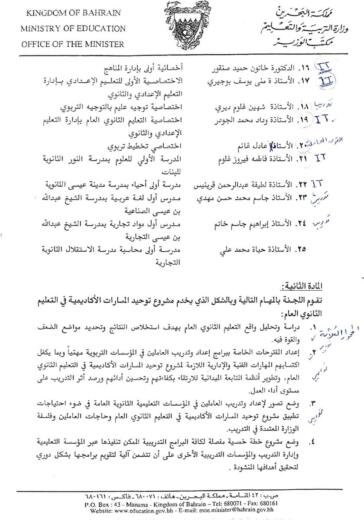 KINGDOM OF BAHRAIN
MINISTRY OF EDUCATION
OFFICE OF THE MINISTER
مملكة البحرين
وزارة التربية والتعليم
مكتب الوزير
١٦. الدكتورة خاتون حميد صنقور أخصائية أولى بإدارة المناهج
١٧. الأستاذة منى يوسف بوجيري الاختصاصية الأولى للتعليم الإعدادي بإدارة
التعليم الإعدادي والثانوي
١٨. الأستاذة شهين غلوم ديري اختصاصية توجيه عليم بالتوجيه التربوي
١٩. الأستاذة وداد محمد الجودر اختصاصية التعليم الثانوي العام بإدارة التعليم
الإعدادي والثانوي
٢٠. الأستاذ عادل غانم اختصاصي تخطيط تربوي
٢١. الأستاذة فاطمه فيروز غلوم المدرسة الأولي للعلوم بمدرسة النور الثانوية
للبنات
٢٢. الأستاذة لطيفة عبدالرحمن قرينيس مدرسة أولى أحياء بمدرسة مدينة عيسى الثانوية
٢٣. الأستاذ جاسم محمد حسن مهدي مدرس أول لغة عربية بمدرسة الشيخ عبدالله
بن عيسى الصناعية
٢٤. الأستاذ إبراهيم جاسم خاتم مدرس أول مواد تجارية بمدرسة الشيخ عبدالله
بن عيسى التجارية
٢٥. الأستاذة حياة محمد علي مدرسة أولى محاسبة بمدرسة الاستقلال الثانوية
التجارية
المادة الثانية:
تقوم اللجنة بالمهام التالية وبالشكل الذي يخدم مشروع توحيد المسارات الأكاديمية في التعليم
الثانوي العام:
١. دراسة وتحليل واقع التعليم الثانوي العام بهدف استخلاص النتائج وتحديد مواضع الضعف
والقوة فيه.
٢. إعداد المقترحات الخاصة ببرامج إعداد وتدريب العاملين في المؤسسات التربوية مهنياً وبما يكفل
اكتسابهم المهارات الفنية والإدارية اللازمة لمشروع توحيد المسارات الأكاديمية في التعليم الثانوي
العام، وتطوير أنظمة المتابعة الميدانية للارتقاء بكفاءتهم وتحسين أدائهم ورصد أثر التدريب على
مستوى أداء العمل.
٣. وضع تصور لإعداد وتدريب العاملين في المؤسسات التعليمية الثانوية العامة في ضوء احتياجات
تطبيق مشروع توحيد المسارات الأكاديمية في التعليم الثانوي العام وحاجات العاملين وفلسفة
الوزارة المعتمدة في التدريب.
٤. وضع مشروع خطة خمسية مفصلة لكافة البرامج التدريبية الممكن تنفيذها عبر المؤسسة التعليمية
وإدارة التدريب والمؤسسات الأخرى على أن تتضمن آلية لتقويم برامجها بشكل دوري
لتحقيق أهدافها المنشودة.
ص.ب: ٤٣ المنامة - مملكة البحرين - هاتف: ٦٨٠٠٧١ - فاكس: ٦٨٠١٦١
P.O. Box : 43 - Manama - Kingdom of Bahrain - Tel: 680071 - Fax: 680161
Website: www.education.gov.bh - E-mail: moe.minister@bahrain.gov.bh